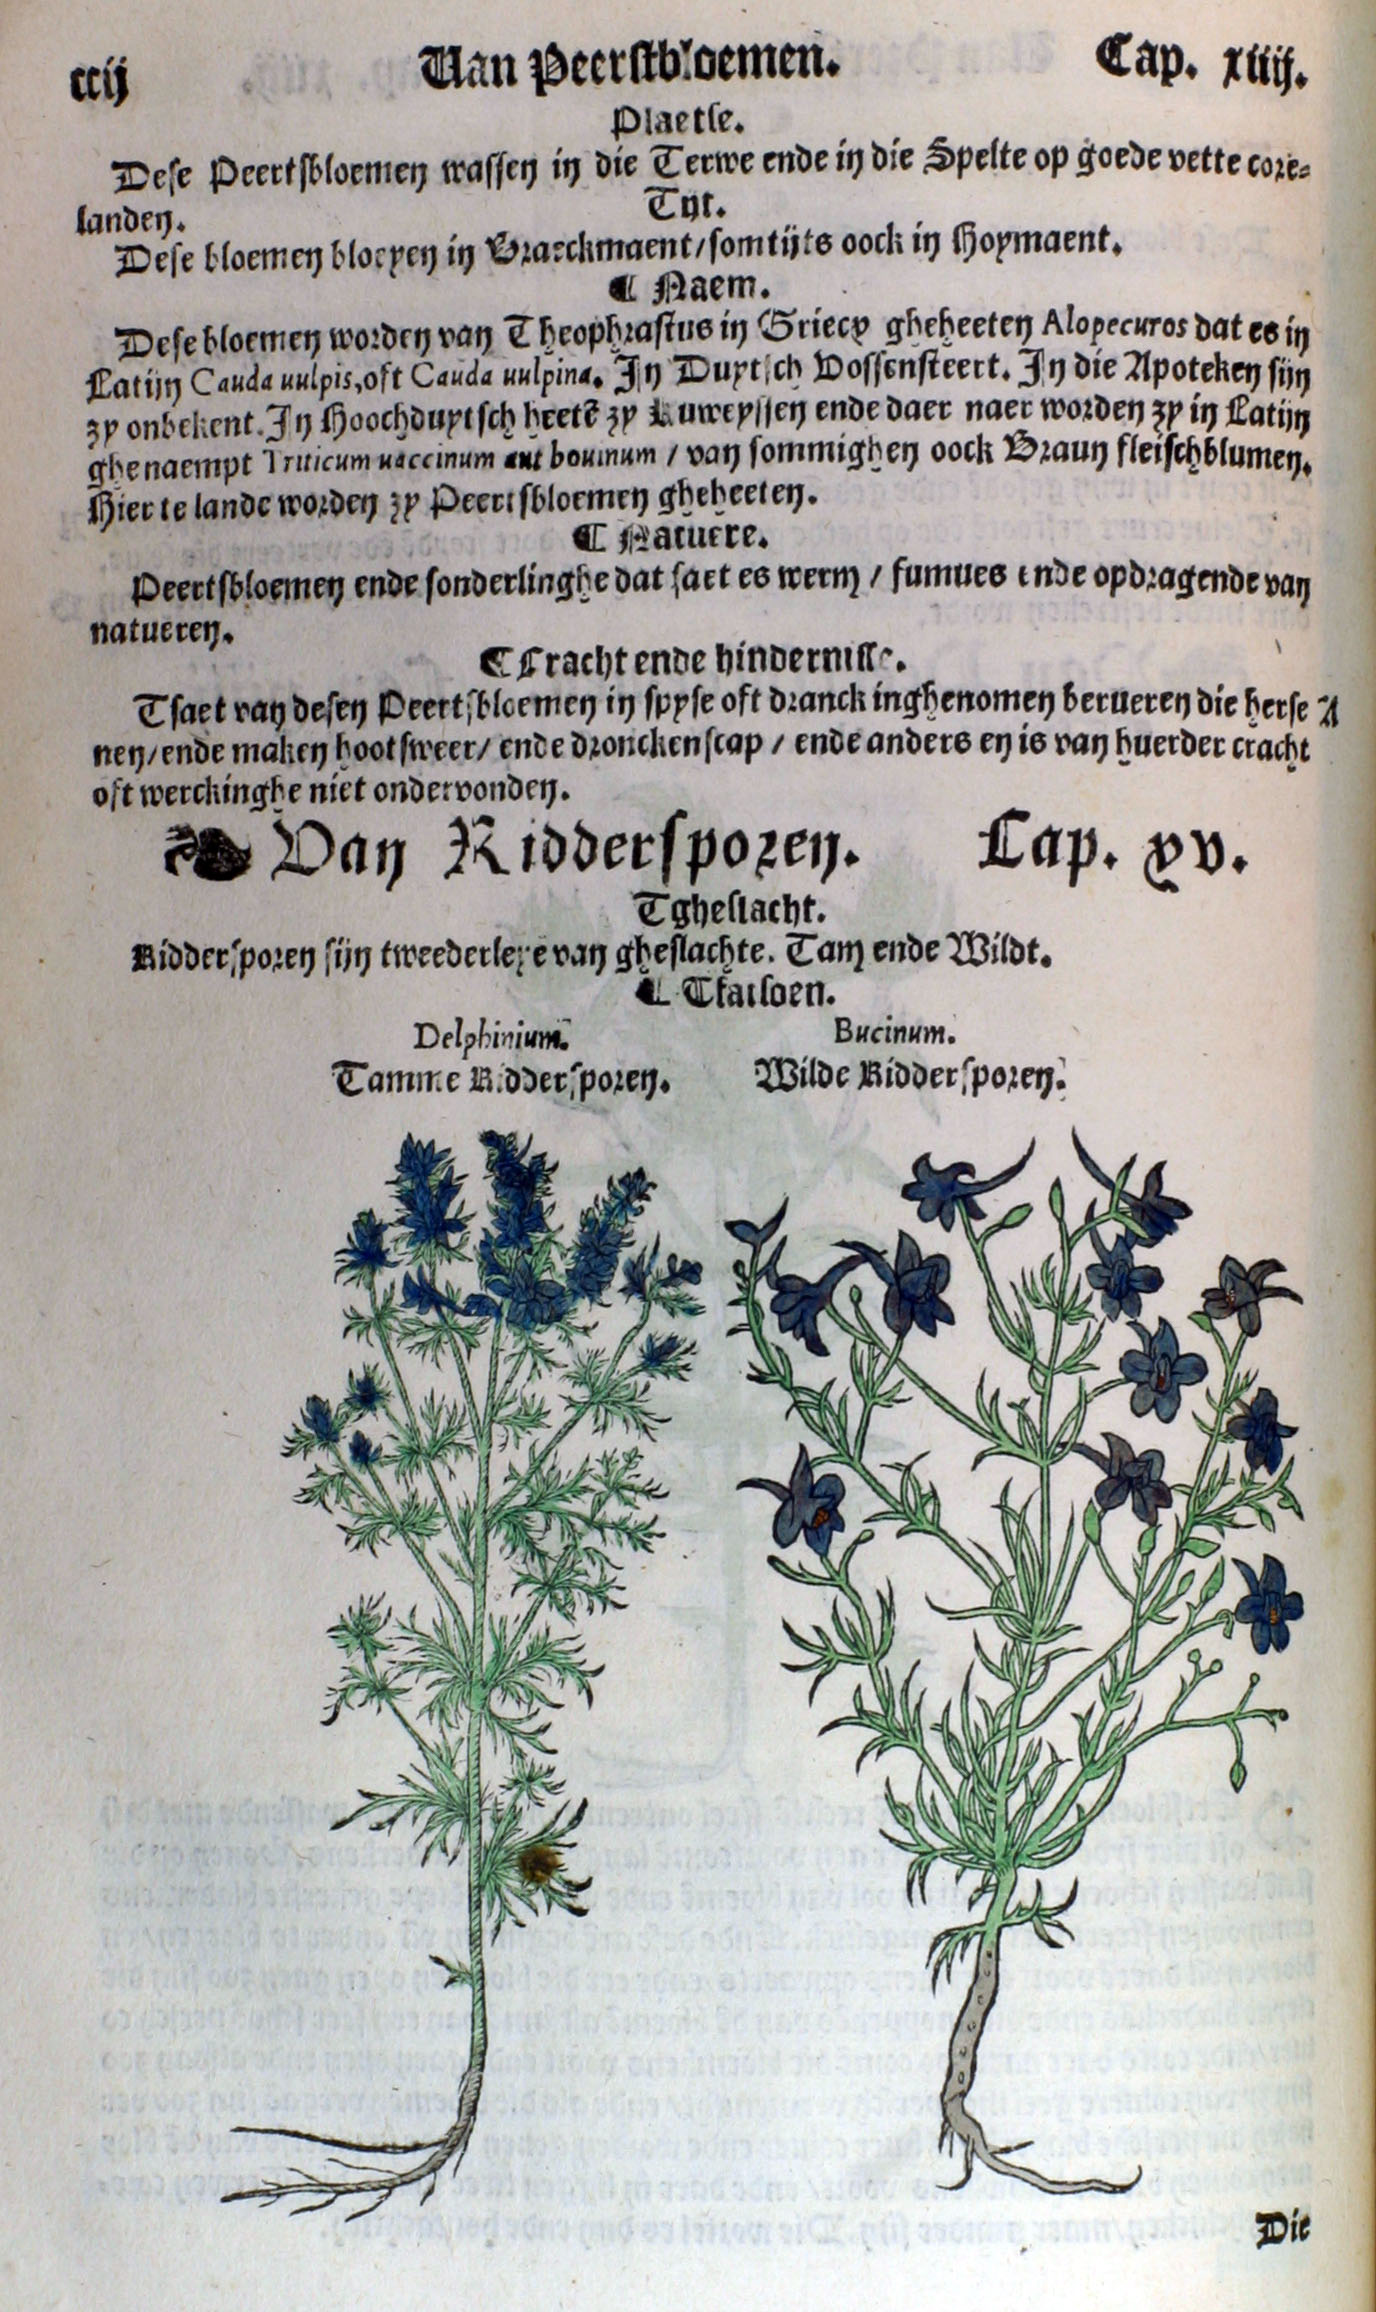 ccij Van Peerstbloemen. Cap. xiiij.
Plaetse.
Dese Peertsbloemen wassen in die Terwe ende in die Spelte op goede vette core-
landen.
Tijt.
Dese bloemen bloeyen in Braeckmaent/somtijts oock in Hoymaent.
¶ Naem.
Dese bloemen worden van Theophrastus in Griecx gheheeten Alopecuros dat es in
Latijn Cauda uulpis, oft Cauda uulpina. In Duytsch Vossensteert. In die Apoteken sijn
zy onbekent. In Hoochduytsch heetē zy Kuweyssen ende daer naer worden zy in Latijn
ghenaempt Triticum uaccinum aut bouinum / van sommighen oock Braun fleischblumen.
Hier te lande worden zy Peertsbloemen gheheeten.
¶ Natuere.
Peertsbloemen ende sonderlinghe dat saet es werm / fumues ende opdragende van
natueren.
¶ Cracht ende hindernisse.
Tsaet van desen Peertsbloemen in spyse oft dranck inghenomen berueren die herse A
nen/ende maken hootsweer/ ende dronckenscap / ende anders en is van huerder cracht
oft werckinghe niet ondervonden.
Van Riddersporen. Cap. xv.
Tgheslacht.
Riddersporen sijn tweederleye van gheslachte. Tam ende Wildt.
¶ Tfatsoen.
Delphinium. Bucinum.
Tamme Riddersporen. Wilde Riddersporen.
Die